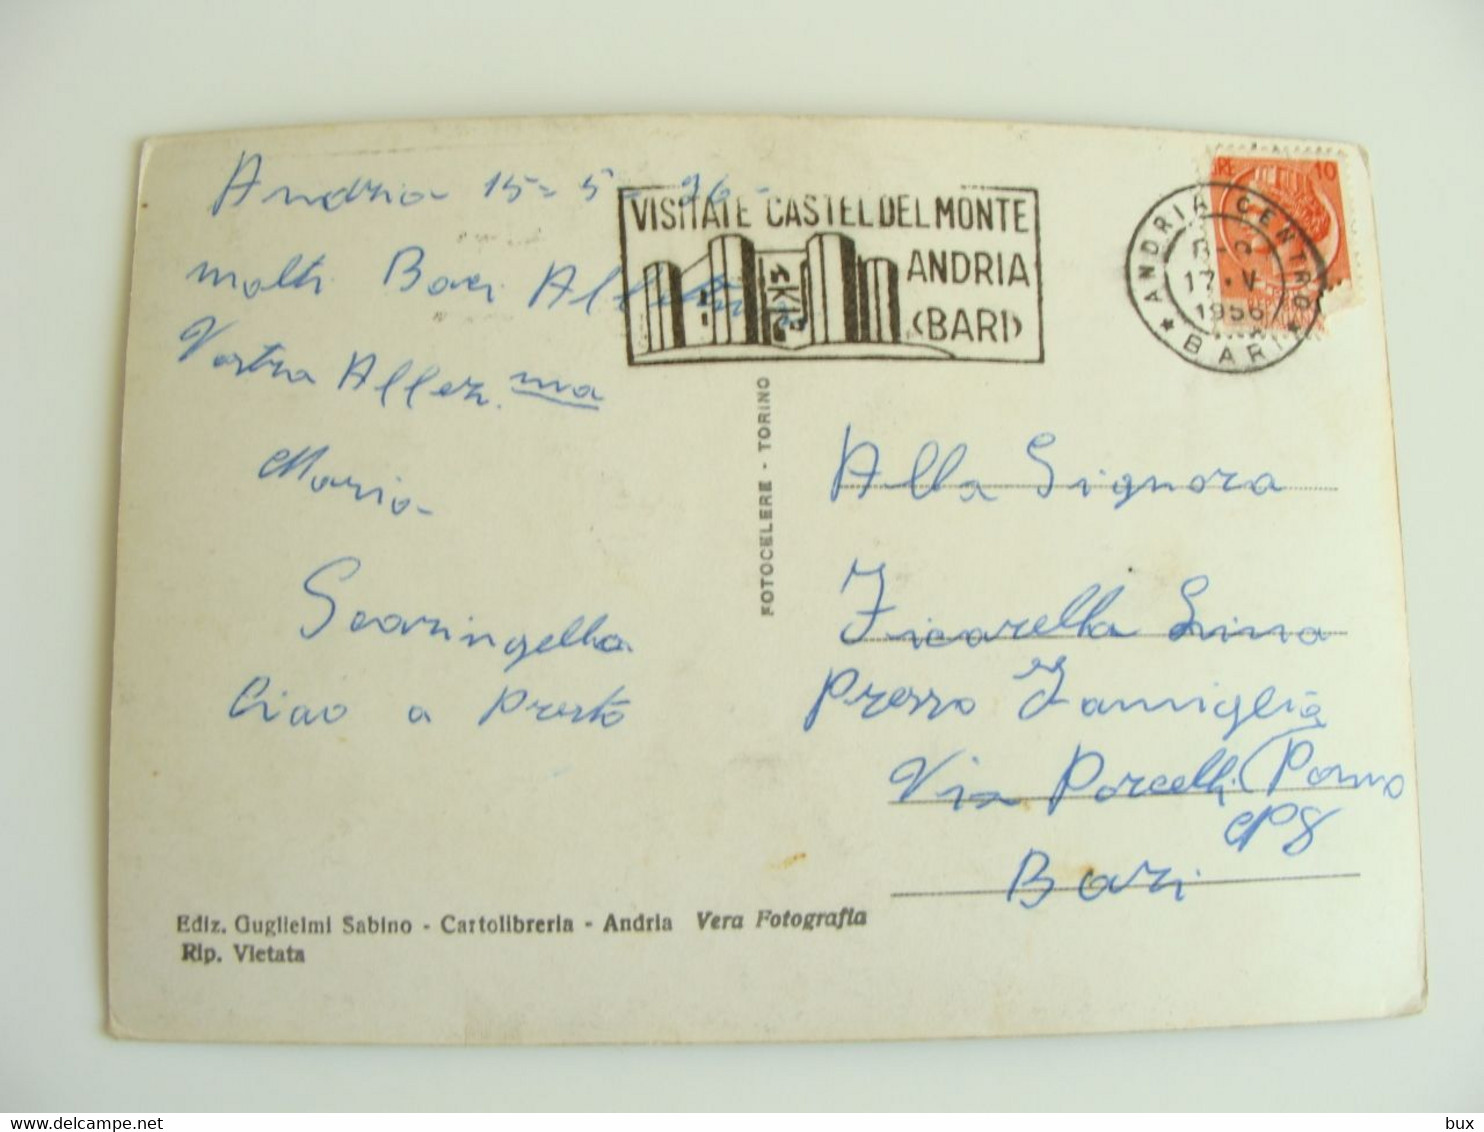 Andria 15-5-56-
molti Baci
Vostra Allez.ma
Maria
Scaringella
Ciao a Presto
VISITATE CASTEL DEL MONTE
ANDRIA
(BARI)
ANDRIA CENTRO
17·V
1956
★ BARI ★
10
FOTOCELERE - TORINO
Alla Signora
Ficarella Lina
Presso Famiglia
Via Porcelli
Bari
Ediz. Guglielmi Sabino - Cartolibreria - Andria Vera Fotografia
Rip. Vietata
bux
delcampe.net